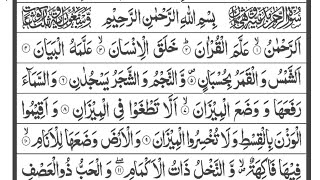 بِسْمِ اللّٰهِ الرَّحْمٰنِ الرَّحِیْمِ
اَلرَّحْمٰنُ ۙ۱ عَلَّمَ الْقُرْاٰنَ ؕ۲ خَلَقَ الْاِنْسَانَ ۙ۳ عَلَّمَهُ الْبَیَانَ ۴
اَلشَّمْسُ وَ الْقَمَرُ بِحُسْبَانٍ ۪۵ وَّ النَّجْمُ وَ الشَّجَرُ یَسْجُدٰنِ ۶ وَ السَّمَآءَ
رَفَعَهَا وَ وَضَعَ الْمِیْزَانَ ۙ۷ اَلَّا تَطْغَوْا فِی الْمِیْزَانِ ۸ وَ اَقِیْمُوا
الْوَزْنَ بِالْقِسْطِ وَ لَا تُخْسِرُوا الْمِیْزَانَ ۹ وَ الْاَرْضَ وَضَعَهَا لِلْاَنَامِ ۙ۱۰
فِیْهَا فَاكِهَةٌ ۪ۙ وَّ النَّخْلُ ذَاتُ الْاَكْمَامِ ۖ۱۱ وَ الْحَبُّ ذُو الْعَصْفِ